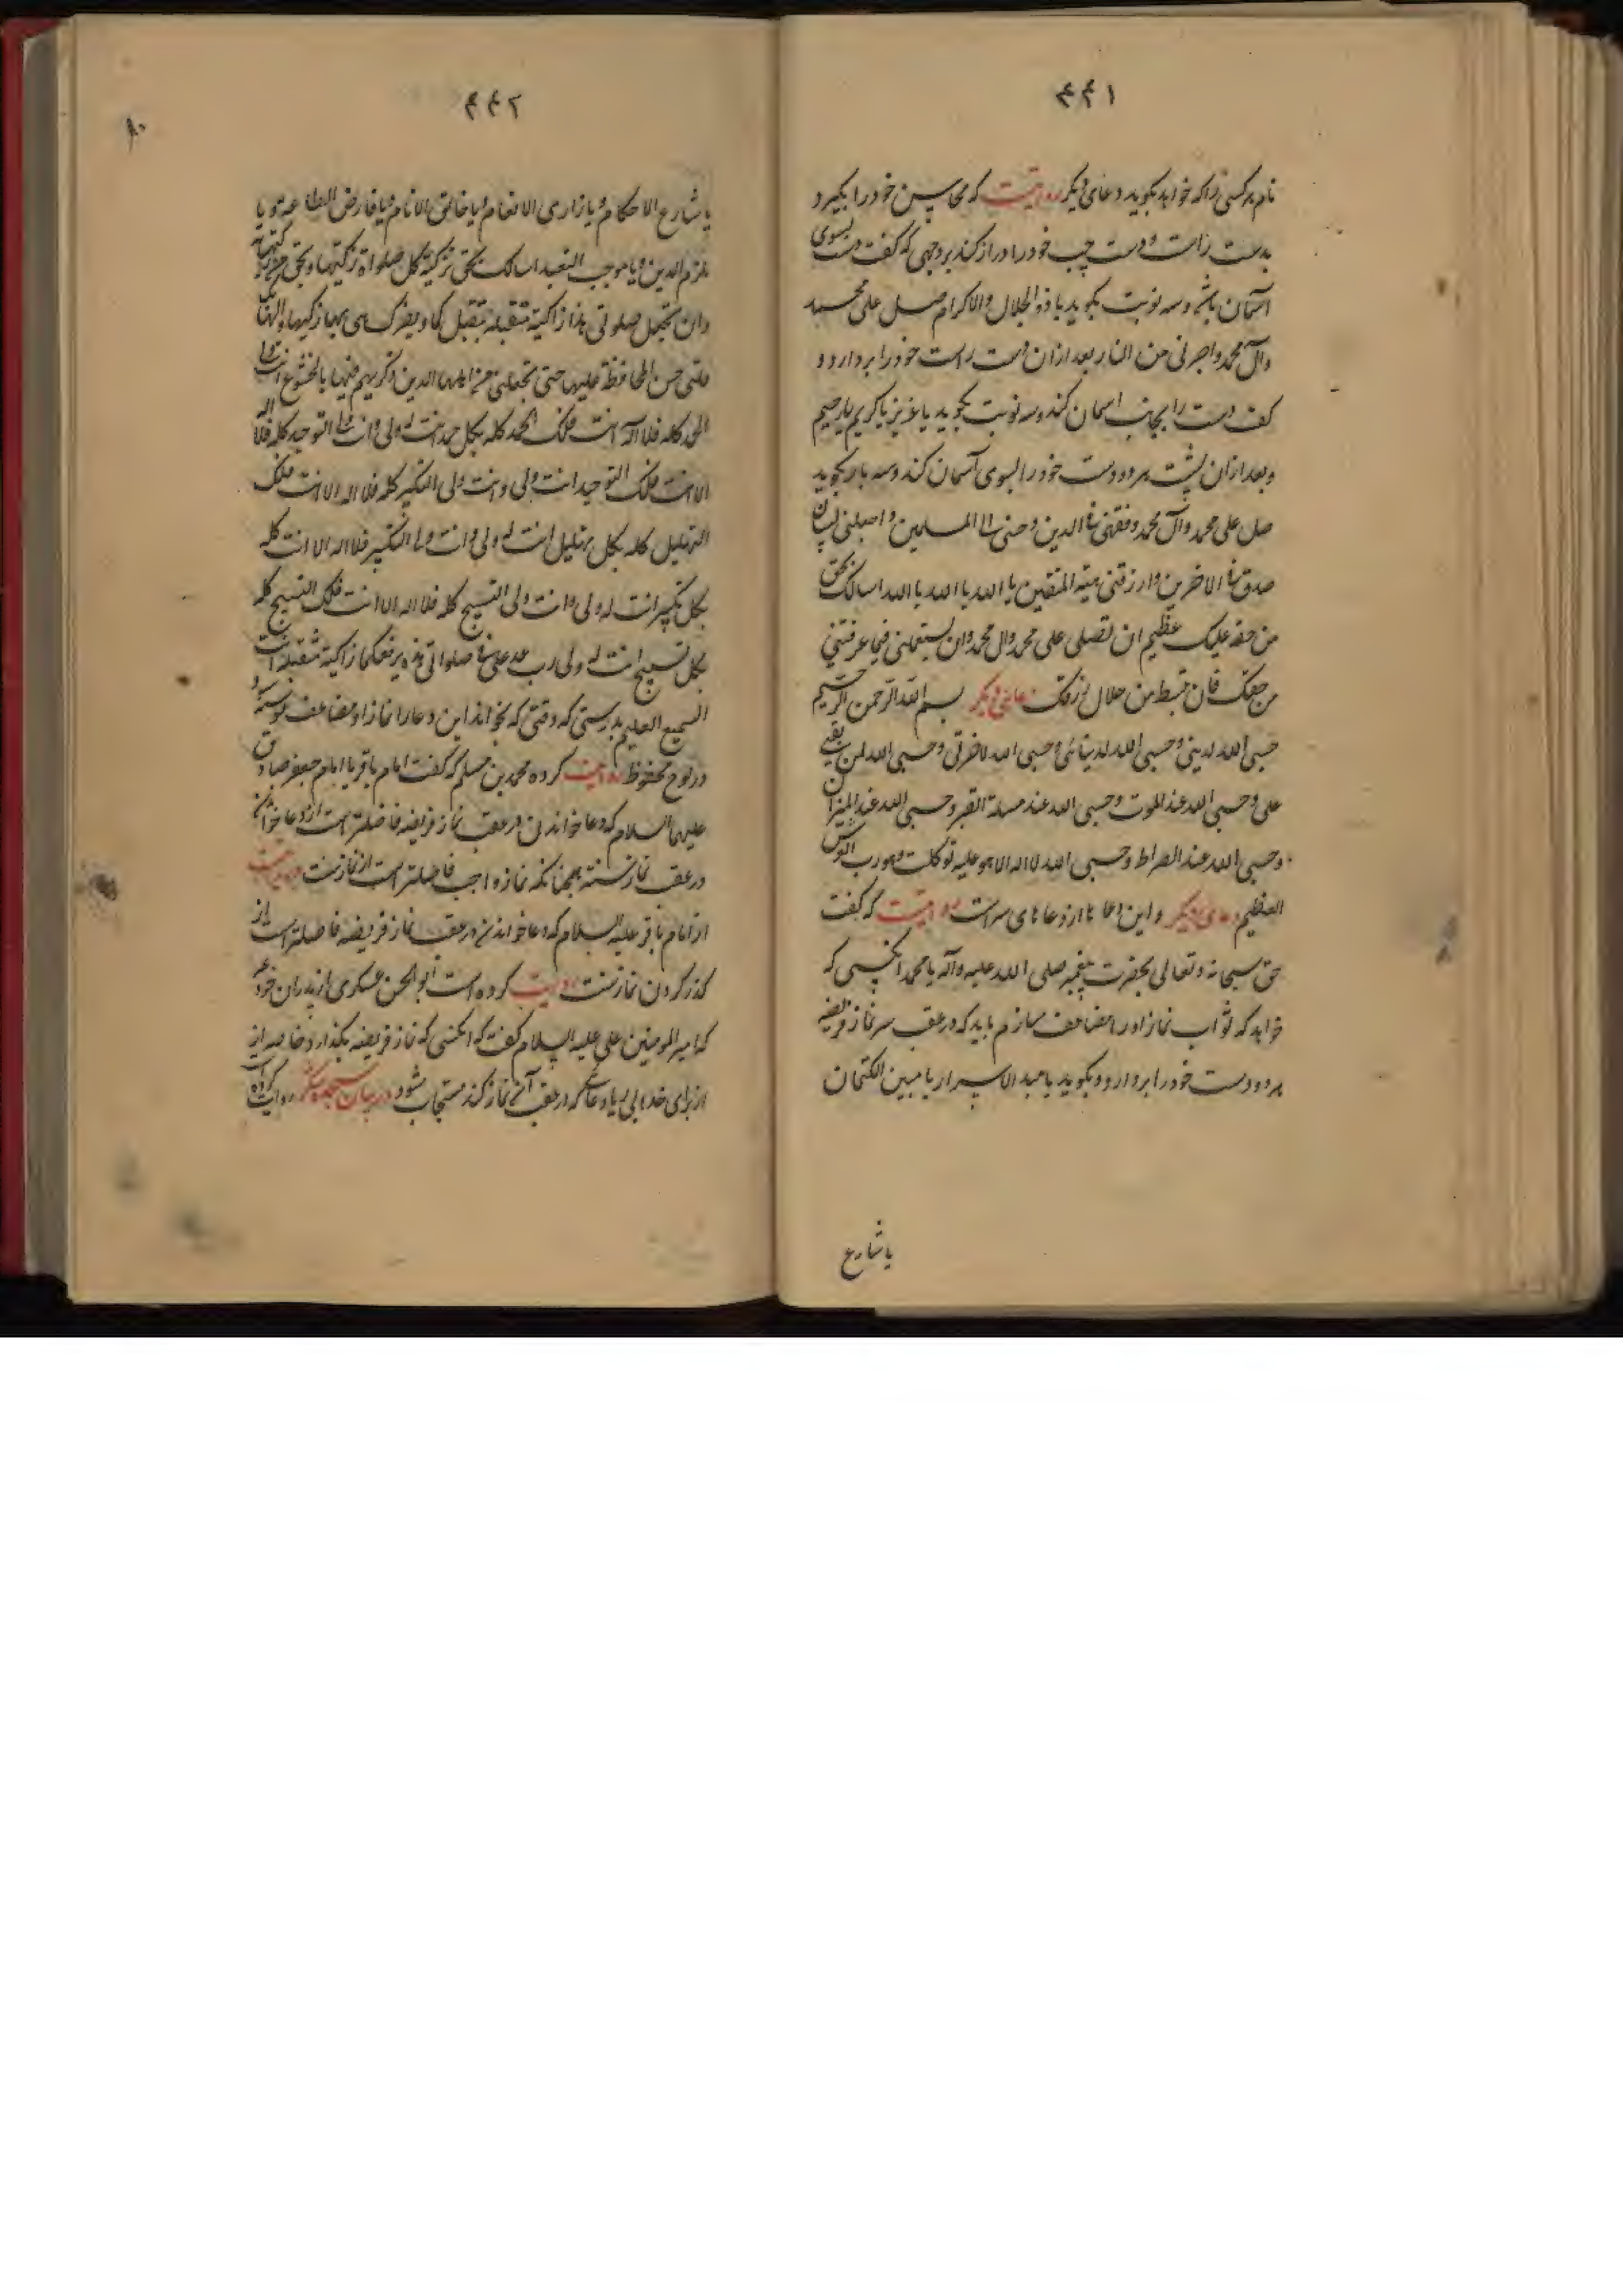 ۴۴۱
نام هر کسی را که خواهد بگوید دعای دیگر روایتست که محاسن خود را بگیرد
بدست راست و دست چپ خود را دراز کند بر وجهی که کف دست بسوی
آسمان باشد و سه نوبت بگوید یا ذوالجلال والاکرام صل علی محمد
وآل محمد واجرنی من النار بعد از ان دست راست خود را بردارد و
کف دست را بجانب اسمان کند و سه نوبت بگوید یا عزیز یا کریم یا رحیم
و بعد از ان پشت هر دو دست خود را بسوی آسمان کند و سه بار بگوید
صل علی محمد وآل محمد وفقهنی فی الدین وحببنی الی المسلمین واجعلنی لسان
صدق فی الاخرین وارزقنی هیبة المتقین یا الله یا الله یا الله اسالک بحق
من حقه علیک عظیم ان تصلی علی محمد وال محمد وان تستعملنی فیما عرفتنی
من حقک وان تبسط من حلال رزقک دعای دیگر بسم الله الرحمن الرحیم
حسبی الله لدینی وحسبی الله لدنیائی وحسبی الله لاخرتی وحسبی الله لمن بغی
علی وحسبی الله عند الموت وحسبی الله عند مسئلة القبر وحسبی الله عند المیزان
وحسبی الله عند الصراط وحسبی الله لا اله الا هو علیه توکلت وهو رب العرش
العظیم دعای دیگر و این دعا از دعاهای سراست روایتست که گفت
حق سبحانه و تعالی بحضرت پیغمبر صلی الله علیه وآله یا محمد انکسی که
خواهد که ثواب نماز او را مضاعف سازم باید که در عقب هر نماز فریضه
هر دو دست خود را بردارد و بگوید یا مبدء الاسرار یا مبین الکتمان
یا شارع
۴۴۲
یا شارع الاحکام ویا ذاری الانعام ویا خالق الانام ویا فارض الطاعه ویا
ملزم الدین ویا موجب التعبد اسالک بحق تزکیة کل صلواة زکیتها وبحق من زکیتها له
وان تجعل صلوتی هذا زاکیة متقبلة بتقبلکها وبصرک بها زکیها والهامک
قلبی حسن المحافظة علیها حتی تجعلنی من اهلها الذین ذکرتهم فیها بالخشوع انت ولی
الحمد کله فلا اله الا انت فلک الحمد کله بکل حمد انت له ولی وانت ولی التوحید کله فلا اله
الا انت فلک التوحید انت ولی وانت ولی التکبیر کله فلا اله الا انت فلک
التهلیل کله بکل تهلیل انت له ولی وانت ولی التکبیر فلا اله الا انت کله
بکل تکبیر انت له ولی وانت ولی التسبیح کله فلا اله الا انت فلک التسبیح کله
بکل تسبیح انت له ولی رب عد علی فی صلواتی هذه برفعکها زاکیة متقبلة انت
السمیع العلیم بدرستی که وقتی که بخواند این دعا را نماز او مضاعف نوشته شود
در لوح محفوظ روایت کرده محمد بن مسلم که گفت امام باقر یا امام جعفر صادق
علیهما السلام که دعا خواندن در عقب نماز فریضه فاضلتر است از دعا خواندن
در عقب نماز سنته همچنانکه نماز واجب فاضلتر است از نماز سنت روایتست
از امام باقر علیه السلام که دعا خواندن در عقب نماز فریضه فاضلتر است از
گذر کردن نماز سنت روایت کرده است ابوالحسن عسکری از پدران خود
که امیرالمومنین علی علیه السلام گفت که انکسی که نماز فریضه بگذارد خاصه از
از برای خدا بی ریا دعائی که در عقب آن نماز کند مستجاب شود در بیان سجده شکر روایت کرده